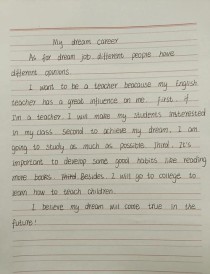 My dream career
As for dream job, different people have
different opinions.
I want to be a teacher beacause my English
teacher has a great influence on me. First, if
I'm a teacher, I will make my students insterested
in my class. Second, to achieve my dream, I am
going to study as much as possible. Third, It's
important to develop some good habits like reading
more books. Besides, I will go to college to
learn how to teach children.
I believe my dream will come true in the
future!